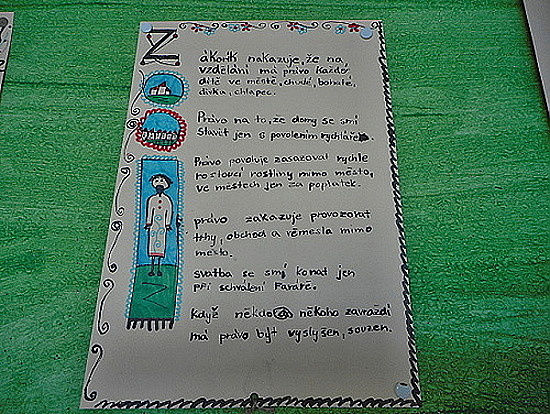 Zákoník nakazuje, že na
vzdělání má právo každé
dítě ve městě, chudé, bohaté,
dívka, chlapec.
Právo na to, že domy se smí
stavit jen s povolením rychtáře
Právo povoluje zasazovat rychle
rostoucí rostliny mimo město,
ve městech jen za poplatek.
právo zakazuje provozovat
trhy, obchod a řemesla mimo
město.
svatba se smí konat jen
při schválení Faráře.
když někdo někoho zavraždí
má právo být vyslyšen, souzen.